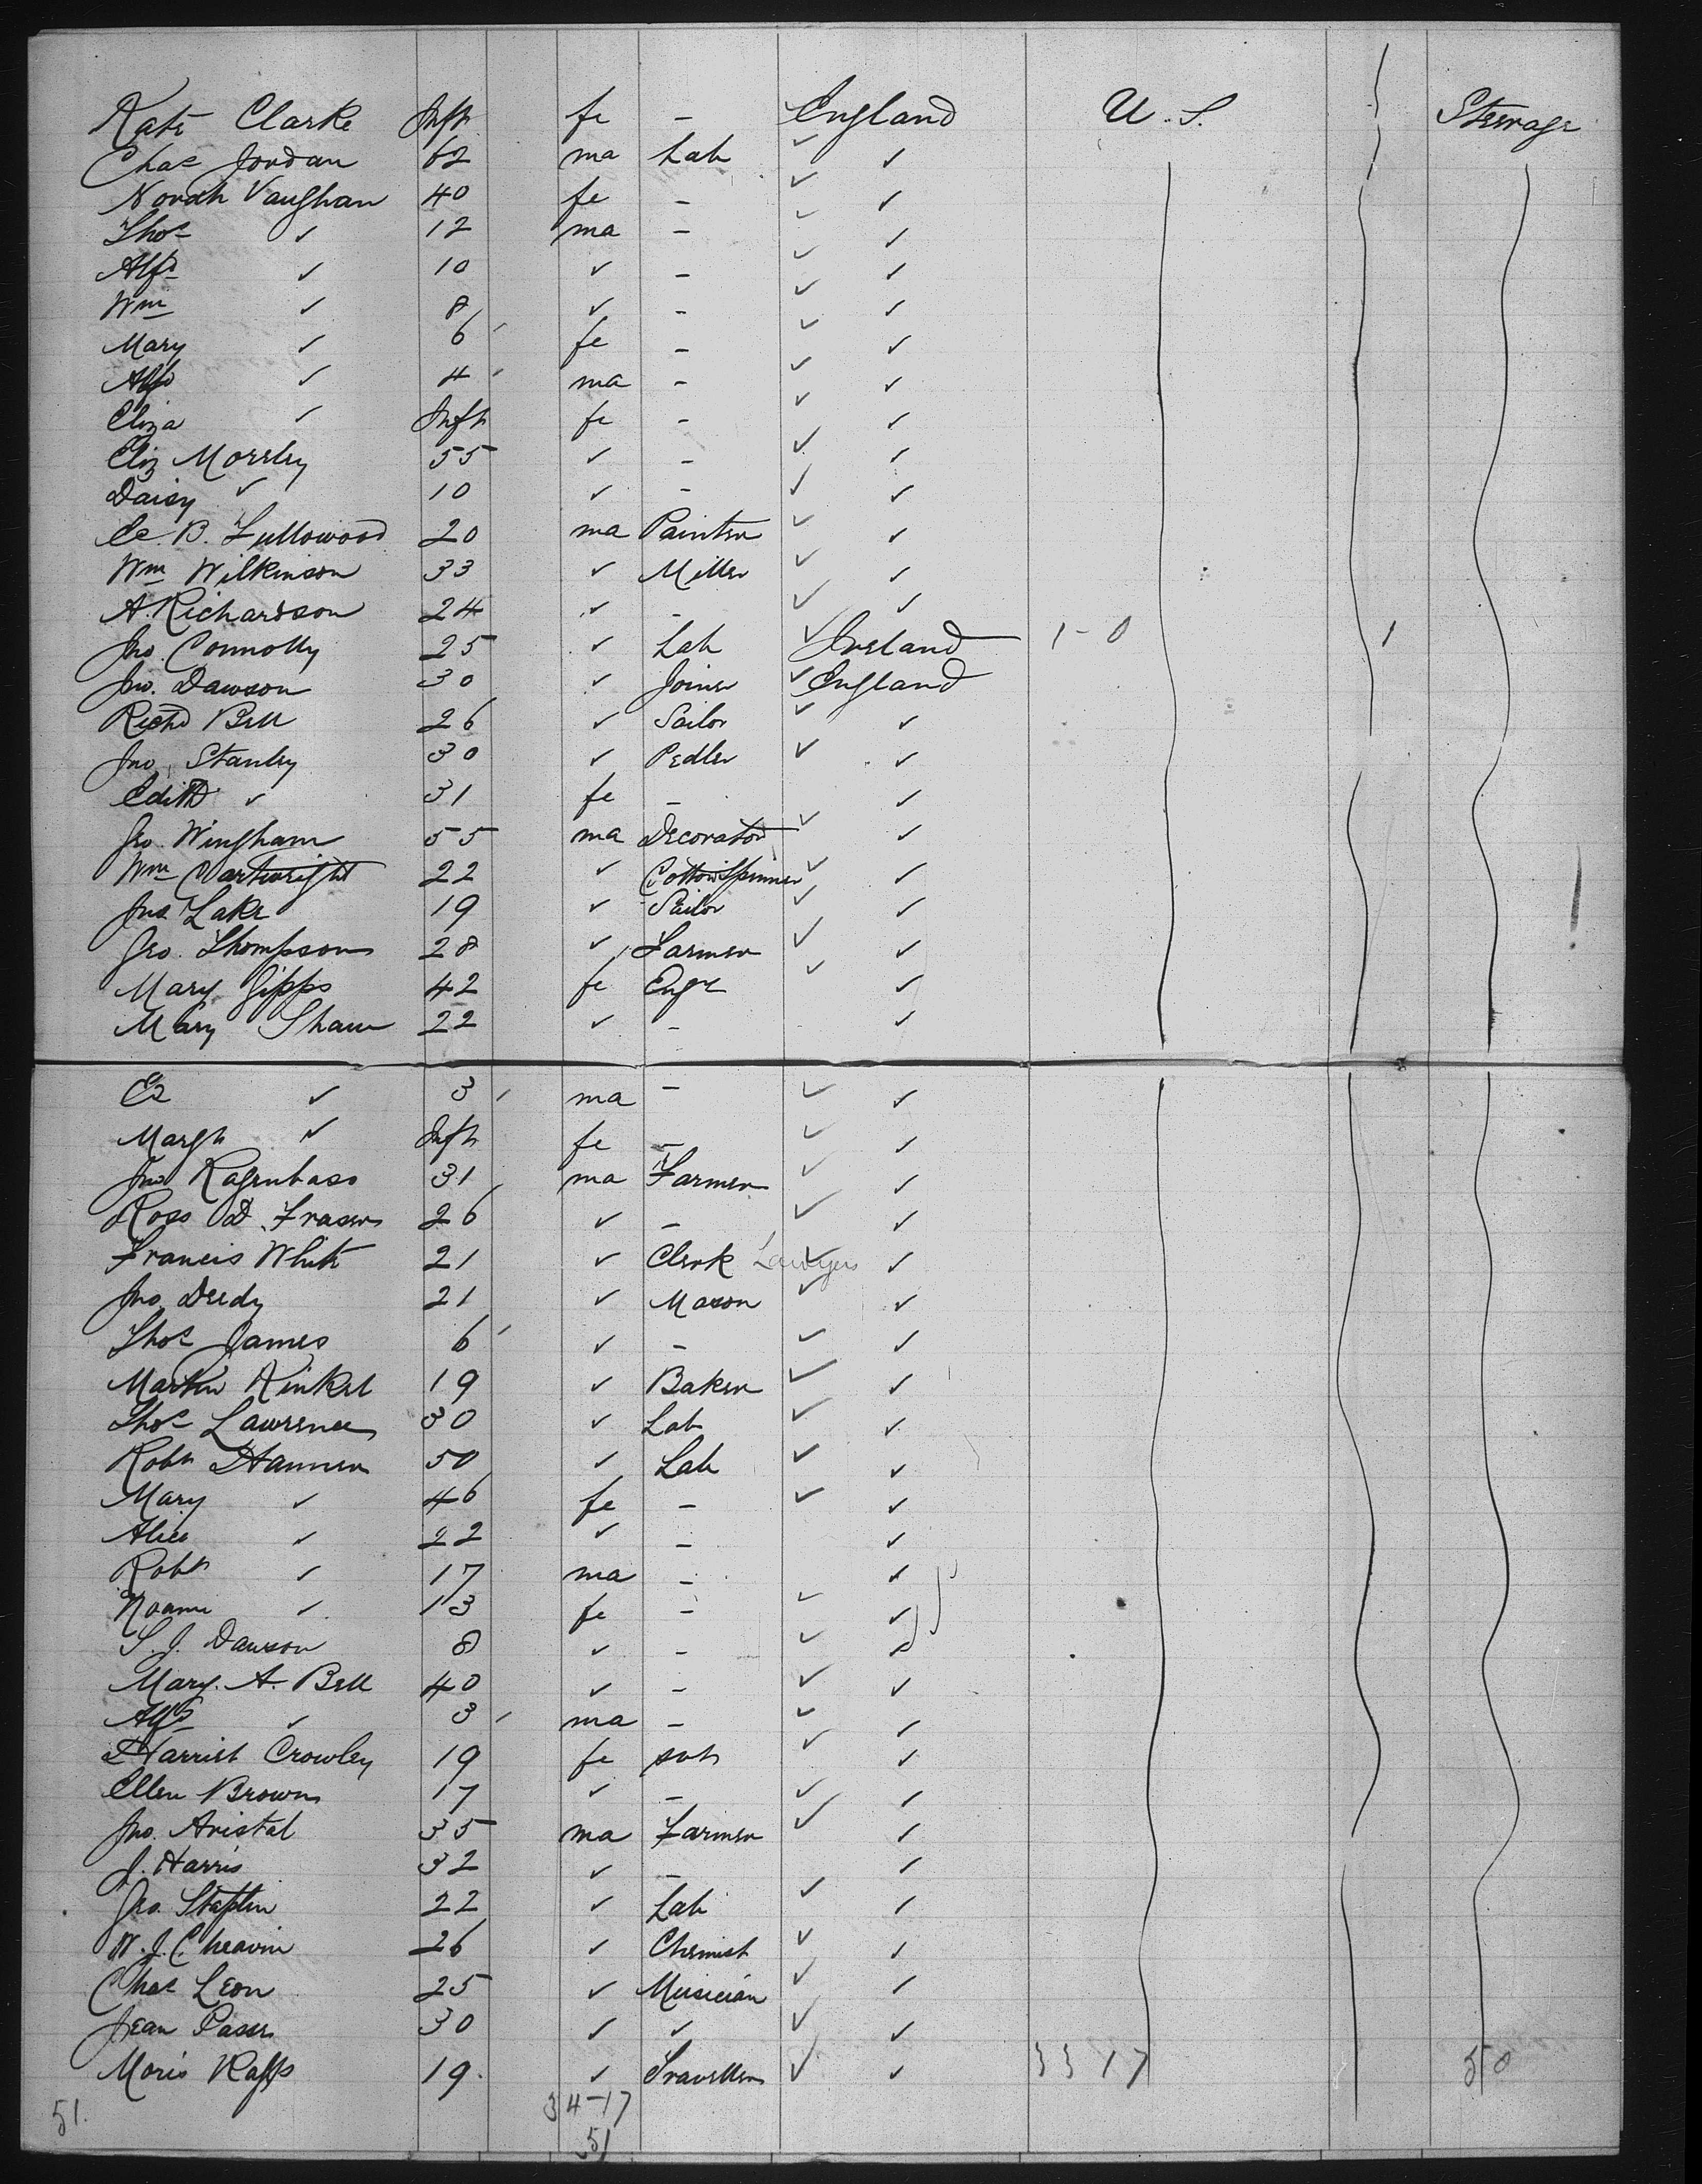 Kate Clarke Inft fe – England U.S. Steerage
Chas Jordan 62 ma Lab ✓ ✓
Norah Vaughan 40 fe – ✓ ✓
Thos ✓ 12 ma – ✓ ✓
Alfd ✓ 10 ✓ – ✓ ✓
Wm ✓ 8 ✓ – ✓ ✓
Mary ✓ 6 fe – ✓ ✓
Alfd ✓ 4 ma – ✓ ✓
Eliza ✓ Inft fe – ✓ ✓
Eliz Morsley 55 ✓ – ✓ ✓
Daisy ✓ 10 ✓ – ✓ ✓
B. 20 ma Painter ✓ ✓
Wm Wilkinson 33 ✓ Miller ✓ ✓
A. Richardson 24 ✓ – ✓ ✓
Jno. Connolly 25 ✓ Lab ✓ Ireland 1–0 1
Jno. Dawson 30 ✓ Joiner ✓ England
Richd Bell 26 ✓ Sailor ✓ ✓
Jno. Stanley 30 ✓ Pedler ✓ ✓
Edith ✓ 31 fe – ✓
Geo. Wingham 55 ma Decorator ✓ ✓
Wm Cartwright 22 ✓ Cotton Spinner ✓ ✓
Jno Lake 19 ✓ Sailor ✓ ✓
Geo. Thompson 28 ✓ Farmer ✓ ✓
Mary Gipps 42 fe Engr ✓ ✓
Mary Shaw 22 ✓ – ✓
✓ 3 ma – ✓ ✓
Margt ✓ Inft fe – ✓ ✓
Jno Ragenbass 31 ma Farmer ✓ ✓
Ross D. Fraser 26 ✓ – ✓ ✓
Francis White 21 ✓ Clerk Lawyers ✓ ✓
Jno Deedy 21 ✓ Mason ✓ ✓
Thos James 6 ✓ – ✓ ✓
Martin Kinkel 19 ✓ Baker ✓ ✓
Thos Lawrence 30 ✓ Lab ✓ ✓
Robt Hanner 50 ✓ Lab ✓ ✓
Mary ✓ 46 fe – ✓ ✓
Alice ✓ 22 ✓ – ✓
Robt ✓ 17 ma – ✓
Noami ✓ 13 fe – ✓ ✓
S. J. Dawson 8 ✓ – ✓ ✓
Mary. A. Bell 40 ✓ – ✓ ✓
Alfd ✓ 3 ma – ✓ ✓
Harriet Crowley 19 fe svt ✓ ✓
Ellen Brown 17 ✓ – ✓ ✓
Jno. Aristal 35 ma Farmer ✓ ✓
J. Harris 32 ✓ – ✓
Geo. Staplin 22 ✓ Lab ✓ ✓
W. J. Cheavin 26 ✓ Chemist ✓ ✓
Chas Leon 25 ✓ Musician ✓ ✓
Jean 30 ✓ ✓ ✓ ✓
Moris 19. ✓ Traveller ✓ ✓ 33 17 50
51. 34–17
51